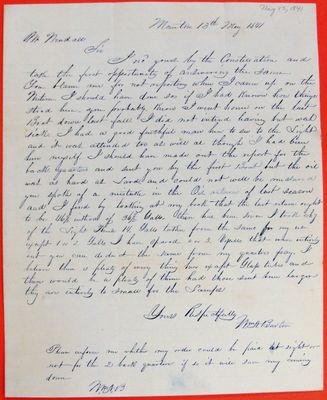 May 13, 1841
Manitou 13th May 1841
Mr Wendall
Sir
I recd yours by the Constellation and
take the first opportunity of answering the same.
You blame me for not reporting when I came up on the
I should have done so if I had known how things
stood here you probably know I went home on the last
Boat down last fall I did not intend leaving but was
sick I had a good faithful man here to see to the Light
and it was attended too as well as though I had been
here myself I should have made out the report for the
back quarter and sent you by the first Boat but the oil
was as hard as Lard and could not well be measured
you speak of a mistake in the Oil of last season
and I find by looking at my book that the last return ought
to be instead of Galls. When I had been here I took
of the Light these Galls taken from the same for my use
except 1 or 2 Galls I have spared one or 2 Vessels that when entirely
out you can deduct the same from my quarter pay. I
believe there is plenty of every thing here except Glass tubes and
there would be a plenty of them had those sent been larger
they are entirely to small for the Lamps
Yours Respectfully
Wm N Barton
Please inform me whether my order could be paid at sight or
not for the 2 back quarters if so it will save my coming
down
W.N.B